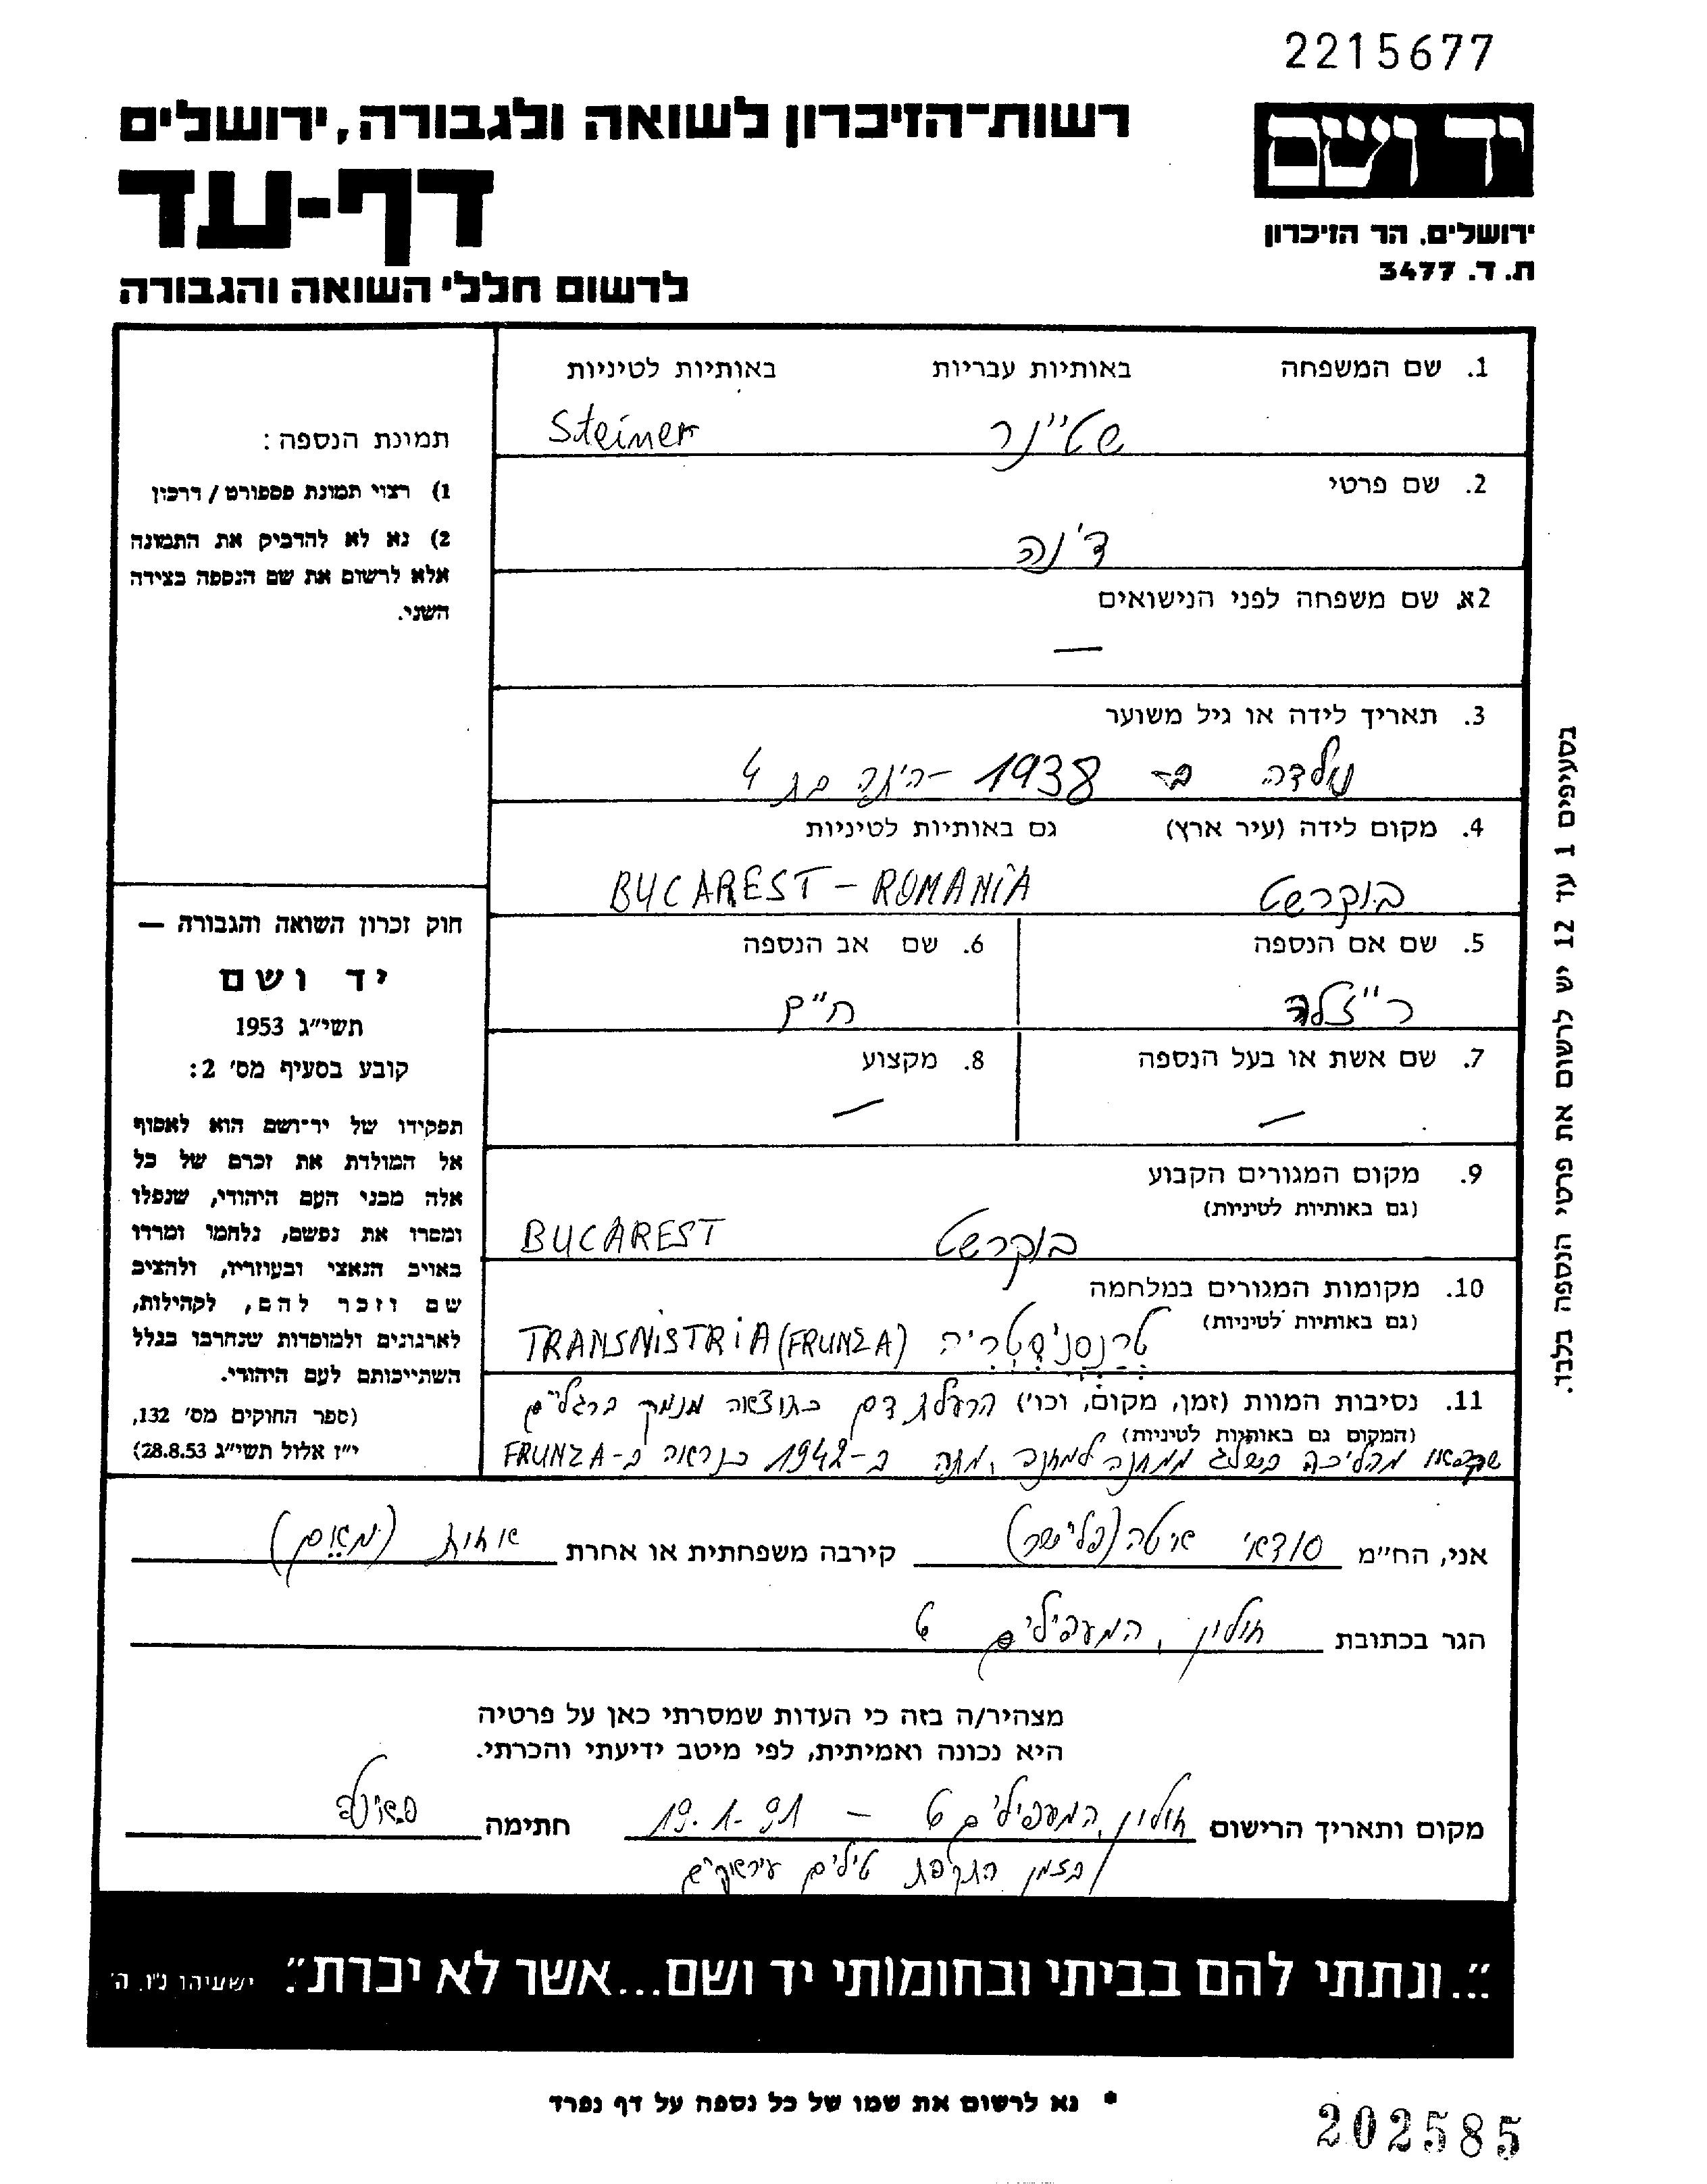 2215677
יד ושם
רשות־הזיכרון לשואה ולגבורה, ירושלים
דף-עד
ירושלים. הר הזיכרון
ת. ד. 3477
לרשום חללי השואה והגבורה
1. שם המשפחה באותיות עבריות באותיות לטיניות
שטיינר Steiner
2. שם פרטי
דינה
2א. שם משפחה לפני הנישואים
—
3. תאריך לידה או גיל משוער
נולדה ב- 1938 - היתה בת 4
4. מקום לידה (עיר ארץ) גם באותיות לטיניות
בוקרשט BUCAREST - ROMANIA
5. שם אם הנספה 6. שם אב הנספה
רייזלה חיים
7. שם אשת או בעל הנספה 8. מקצוע
— —
9. מקום המגורים הקבוע
(גם באותיות לטיניות)
בוקרשט BUCAREST
10. מקומות המגורים במלחמה
(גם באותיות לטיניות)
טרנסניסטריה TRANSNISTRIA (FRUNZA)
11. נסיבות המוות (זמן, מקום, וכו') הרעלת דם כתוצאה מנמק ברגליים
(המקום גם באותיות לטיניות)
שקפאו מהליכה בשלג ממחנה למחנה, מתה ב-1942 כנראה ב-FRUNZA
תמונת הנספה:
1) רצוי תמונת פספורט / דרכון
2) נא לא להדביק את התמונה
אלא לרשום את שם הנספה בצידה
השני.
חוק זכרון השואה והגבורה —
יד ושם
תשי״ג 1953
קובע בסעיף מס׳ 2:
תפקידו של יד־ושם הוא לאסוף
אל המולדת את זכרם של כל
אלה מבני העם היהודי, שנפלו
ומסרו את נפשם, נלחמו ומרדו
באויב הנאצי ובעוזריו, ולהציב
שם וזכר להם, לקהילות,
לארגונים ולמוסדות שנחרבו בגלל
השתייכותם לעם היהודי.
(ספר החוקים מס׳ 132,
י״ז אלול תשי״ג 28.8.53)
בסעיפים 1 עד 12 יש לרשום את פרטי הנספה בלבד.
אני, הח״מ סודאי איטה (פלישר) קירבה משפחתית או אחרת אחות (מאם)
הגר בכתובת חולון, המעפילים 6
מצהיר/ה בזה כי העדות שמסרתי כאן על פרטיה
היא נכונה ואמיתית, לפי מיטב ידיעתי והכרתי.
מקום ותאריך הרישום חולון, המעפילים 6 - 19.1.91 חתימה
בזמן התקפת טילים עיראקיים
״...ונתתי להם בביתי ובחומותי יד ושם...אשר לא יכרת״. ישעיהו נ״ו, ה׳
* נא לרשום את שמו של כל נספה על דף נפרד
202585